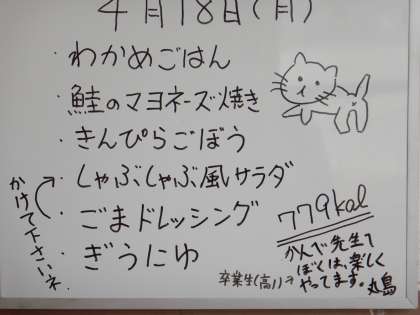 4月18日(月)
・わかめごはん
・鮭のマヨネーズ焼き
・きんぴらごぼう
・しゃぶしゃぶ風サラダ
・ごまドレッシング
・ぎうにゆ
かけて下さいネ
779kal
かんで先生て
ぼくは、楽しく
やってます。丸島
卒業生(高1)→